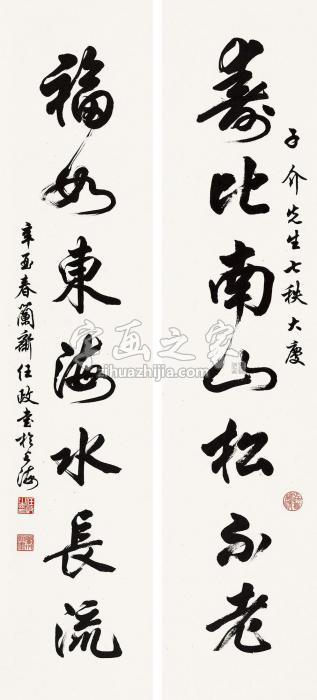 子介先生七秩大慶
壽比南山松不老
福如東海水長流
辛酉春蘭齋任政書於上海
字画之家
zihuazhijia.com